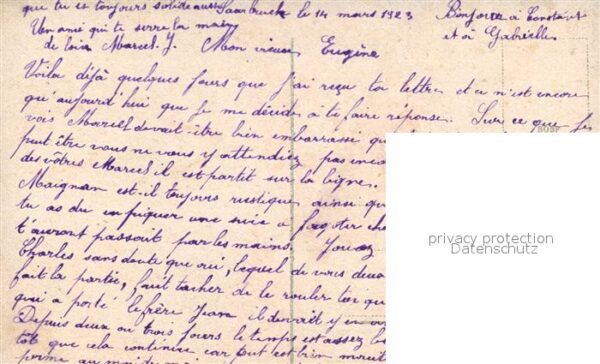 que tu es toujours solide aussi Saarbruck le 14 mars 1923 Bonjour à Constant
Un ami qui te serre la main et à Gabrielle
de loin Marcel. J. Mon vieux Eugène
Voila déjà quelques jours que j'ai reçu ta lettre et ce n'est encore
qu'aujourd'hui que je me décide à te faire réponse. Sur ce que je
vois Marcel devait être bien embarrassé
peut être vous ne vous y attendiez pas
des vôtres Marcel il est partit sur la ligne.
Maignan est-il toujours rustique ainsi
tu as du en piquer une suée à fagoter
t'auront passait par les mains. Jouez
Charles sans doute que oui, lequel de vous deux
fait la partie, faut tacher de le rouler toi
qui a porté le frère Jean il devrait y en
Depuis deux ou trois jours le temps est assez
tôt que cela continue car tout est bien
privacy protection
Datenschutz